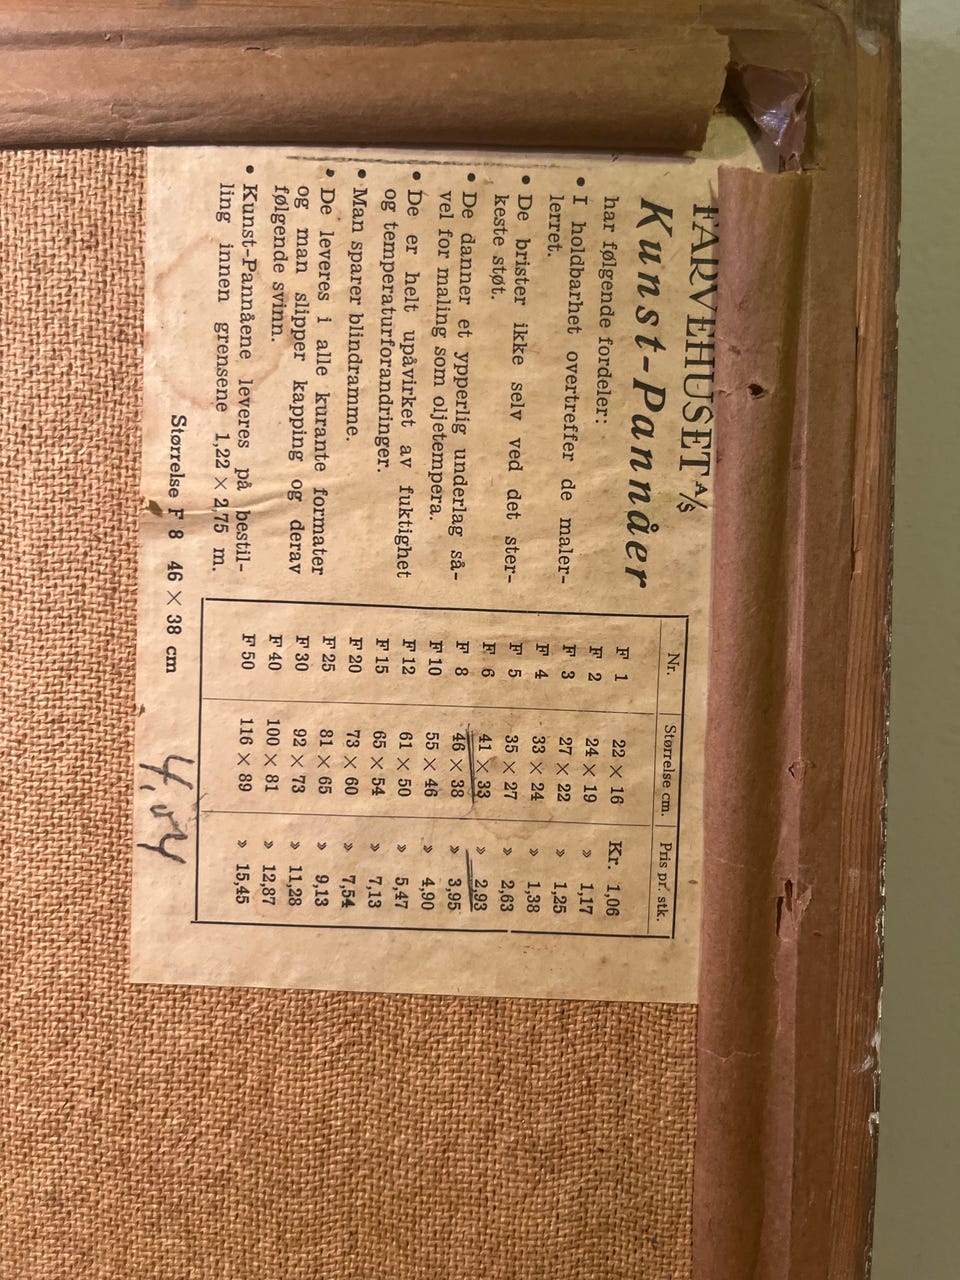 FARVEHUSET A/S
Kunst-Pannåer
har følgende fordeler:
• I holdbarhet overtreffer de maler-
lerret.
• De brister ikke selv ved det ster-
keste støt.
• De danner et ypperlig underlag så-
vel for maling som oljetempera.
• De er helt upåvirket av fuktighet
og temperaturforandringer.
• Man sparer blindramme.
• De leveres i alle kurante formater
og man slipper kapping og derav
følgende svinn.
• Kunst-Pannåene leveres på bestil-
ling innen grensene 1,22 × 2,75 m.
Størrelse F 8 46 × 38 cm
Nr. Størrelse cm. Pris pr. stk.
F 1 22 × 16 Kr. 1,06
F 2 24 × 19 » 1,17
F 3 27 × 22 » 1,25
F 4 33 × 24 » 1,38
F 5 35 × 27 » 2,63
F 6 41 × 33 » 2,93
F 8 46 × 38 » 3,95
F 10 55 × 46 » 4,90
F 12 61 × 50 » 5,47
F 15 65 × 54 » 7,13
F 20 73 × 60 » 7,54
F 25 81 × 65 » 9,13
F 30 92 × 73 » 11,28
F 40 100 × 81 » 12,87
F 50 116 × 89 » 15,45